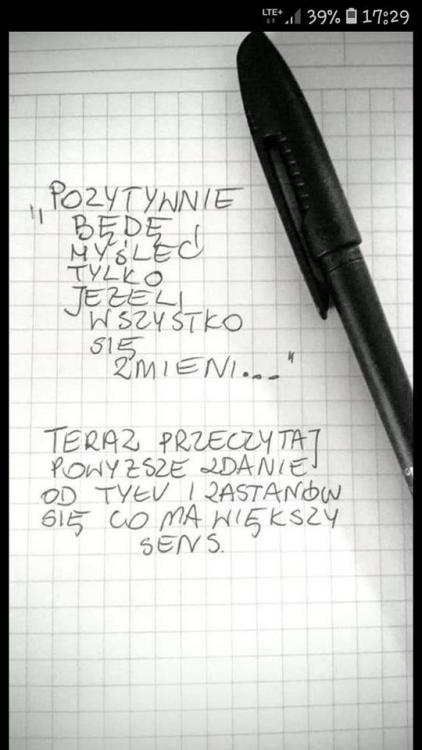 LTE+ 39% 17:29
„POZYTYWNIE
BĘDĘ
MYŚLEĆ
TYLKO
JEŻELI
WSZYSTKO
SIĘ
ZMIENI..."
TERAZ PRZECZYTAJ
POWYŻSZE ZDANIE
OD TYŁU I ZASTANÓW
SIĘ CO MA WIĘKSZY
SENS.